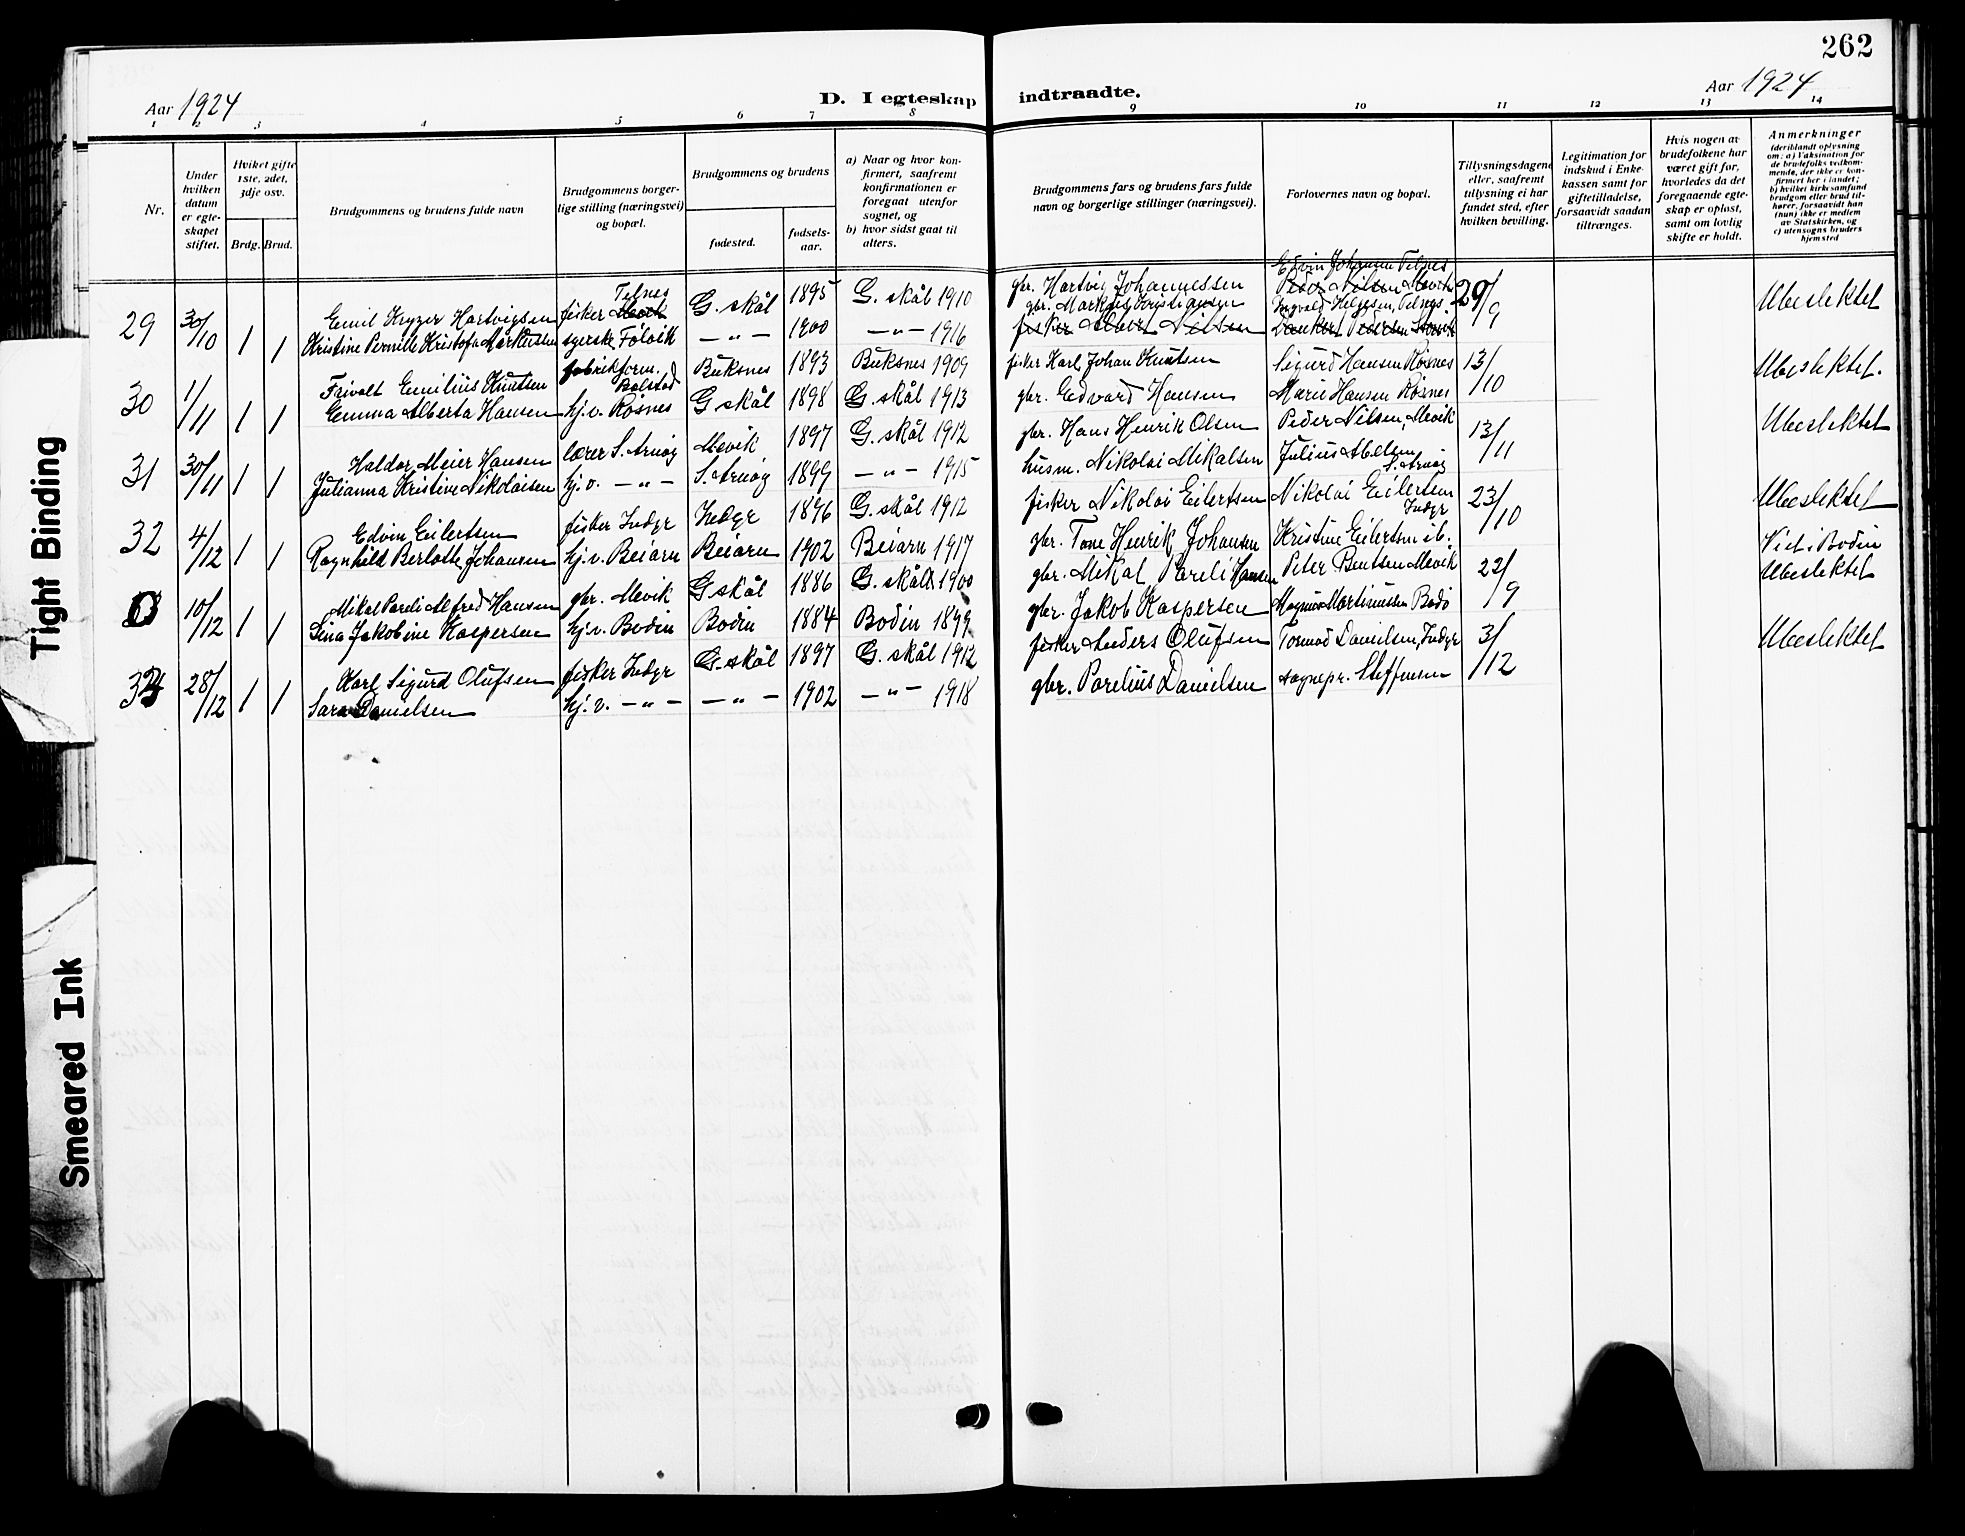 262
Aar 1924
D. I egteskap indtraadte.
Aar 1924
1 2 3 4 5 6 7 8 9 10 11 12 13 14
Nr.
Under hvilken datum er egteskapet stiftet.
Hvilket gifte 1ste, 2det, 3dje osv.
Brdg. Brud.
Brudgommens og brudens fulde navn
Brudgommens borgerlige stilling (næringsvei) og bopæl.
Brudgommens og brudens
fødested.
fødselsaar.
a) Naar og hvor konfirmert, saafremt konfirmationen er foregaat utenfor sognet, og
b) hvor sidst gaat til alters.
Brudgommens fars og brudens fars fulde navn og borgerlige stillinger (næringsvei).
Forlovernes navn og bopæl.
Tillysningsdagene eller, saafremt tillysning ei har fundet sted, efter hvilken bevilling.
Legitimation for indskud i Enkekassen samt for giftetilladelse, forsaavidt saadan tiltrænges.
Hvis nogen av brudefolkene har været gift før, hvorledes da det foregaaende egteskap er opløst, samt om lovlig skifte er holdt.
Anmerkninger (deriblandt oplysning om: a) Vaksination for de brudefolks vedkommende, der ikke er konfirmert her i landet; b) hvilket kirkesamfund brudgom eller brud tilhører, forsaavidt han (hun) ikke er medlem av Statskirken, og c) utensogns bruders hjemsted
29 30/10 1 1 Emil Kryzer Hartvigsen fisker Telnes G. skål 1895 G. skål 1910 gbr. Hartvig Johannessen Edvin Johansen Telnes 29/9 Ubeslektet
Kristine Pernille Kristofa Markussen syerske Følvik — " — 1900 — " — 1916 gbr. Markus Kristiansen Ingvald Helgesen, Telnes
30 1/11 1 1 Frivolt Emilius Knutsen fabrikform. Bolstad Buksnes 1893 Buksnes 1909 fisker Karl Johan Knutsen Sigurd Hansen Røsnes 13/10 Ubeslektet.
Emma Alberta Hansen hj. v. Røsnes G. skål 1898 G. skål 1913 gbr. Edvard Hansen Marie Hansen Røsnes
31 30/11 1 1 Haldor Meier Hansen lærer S. Arnøy Mevik 1897 G. skål 1912 gbr. Hans Henrik Olsen Peder Nilsen, Mevik 13/11 Ubeslektet
Julianna Kristine Nikolaisen hj. v. — " — S. Arnøy 1899 — " — 1915 husm. Nikolai Mikalsen Julius Abelsen S. Arnøy
32 4/12 1 1 Edvin Eilertsen fisker Indyr Indyr 1896 G. skål 1912 fisker Nikolai Eilertsen Nikolai Eilertsen Indyr 23/10 Ubeslektet
Ragnhild Berlotte Johansen hj. v. Beiarn Beiarn 1902 Beiarn 1917 gbr. Tone Henrik Johansen Kristine Eilertsen ib. Viet i Bodin
0 10/12 1 1 Mikal Pareli Alfred Hansen gbr. Mevik G. skål 1886 G. skål 1900 gbr. Mikal Pareli Hansen Peter Bentsen Mevik 22/9 Ubeslektet
Lina Jakobine Kaspersen hj. v. Bodin Bodin 1884 Bodin 1899 gbr. Jakob Kaspersen Magnus Martinussen Bodø
33 28/12 1 1 Karl Sigurd Olufsen fisker Indyr G. skål 1897 G. skål 1912 fisker Anders Olufsen Tormod Danielsen, Indyr 3/12 Ubeslektet
Sara Danielsen hj. v. — " — — " — 1902 — " — 1918 gbr. Porelius Danielsen sognepr. Steffensen
Tight Binding
Smeared Ink